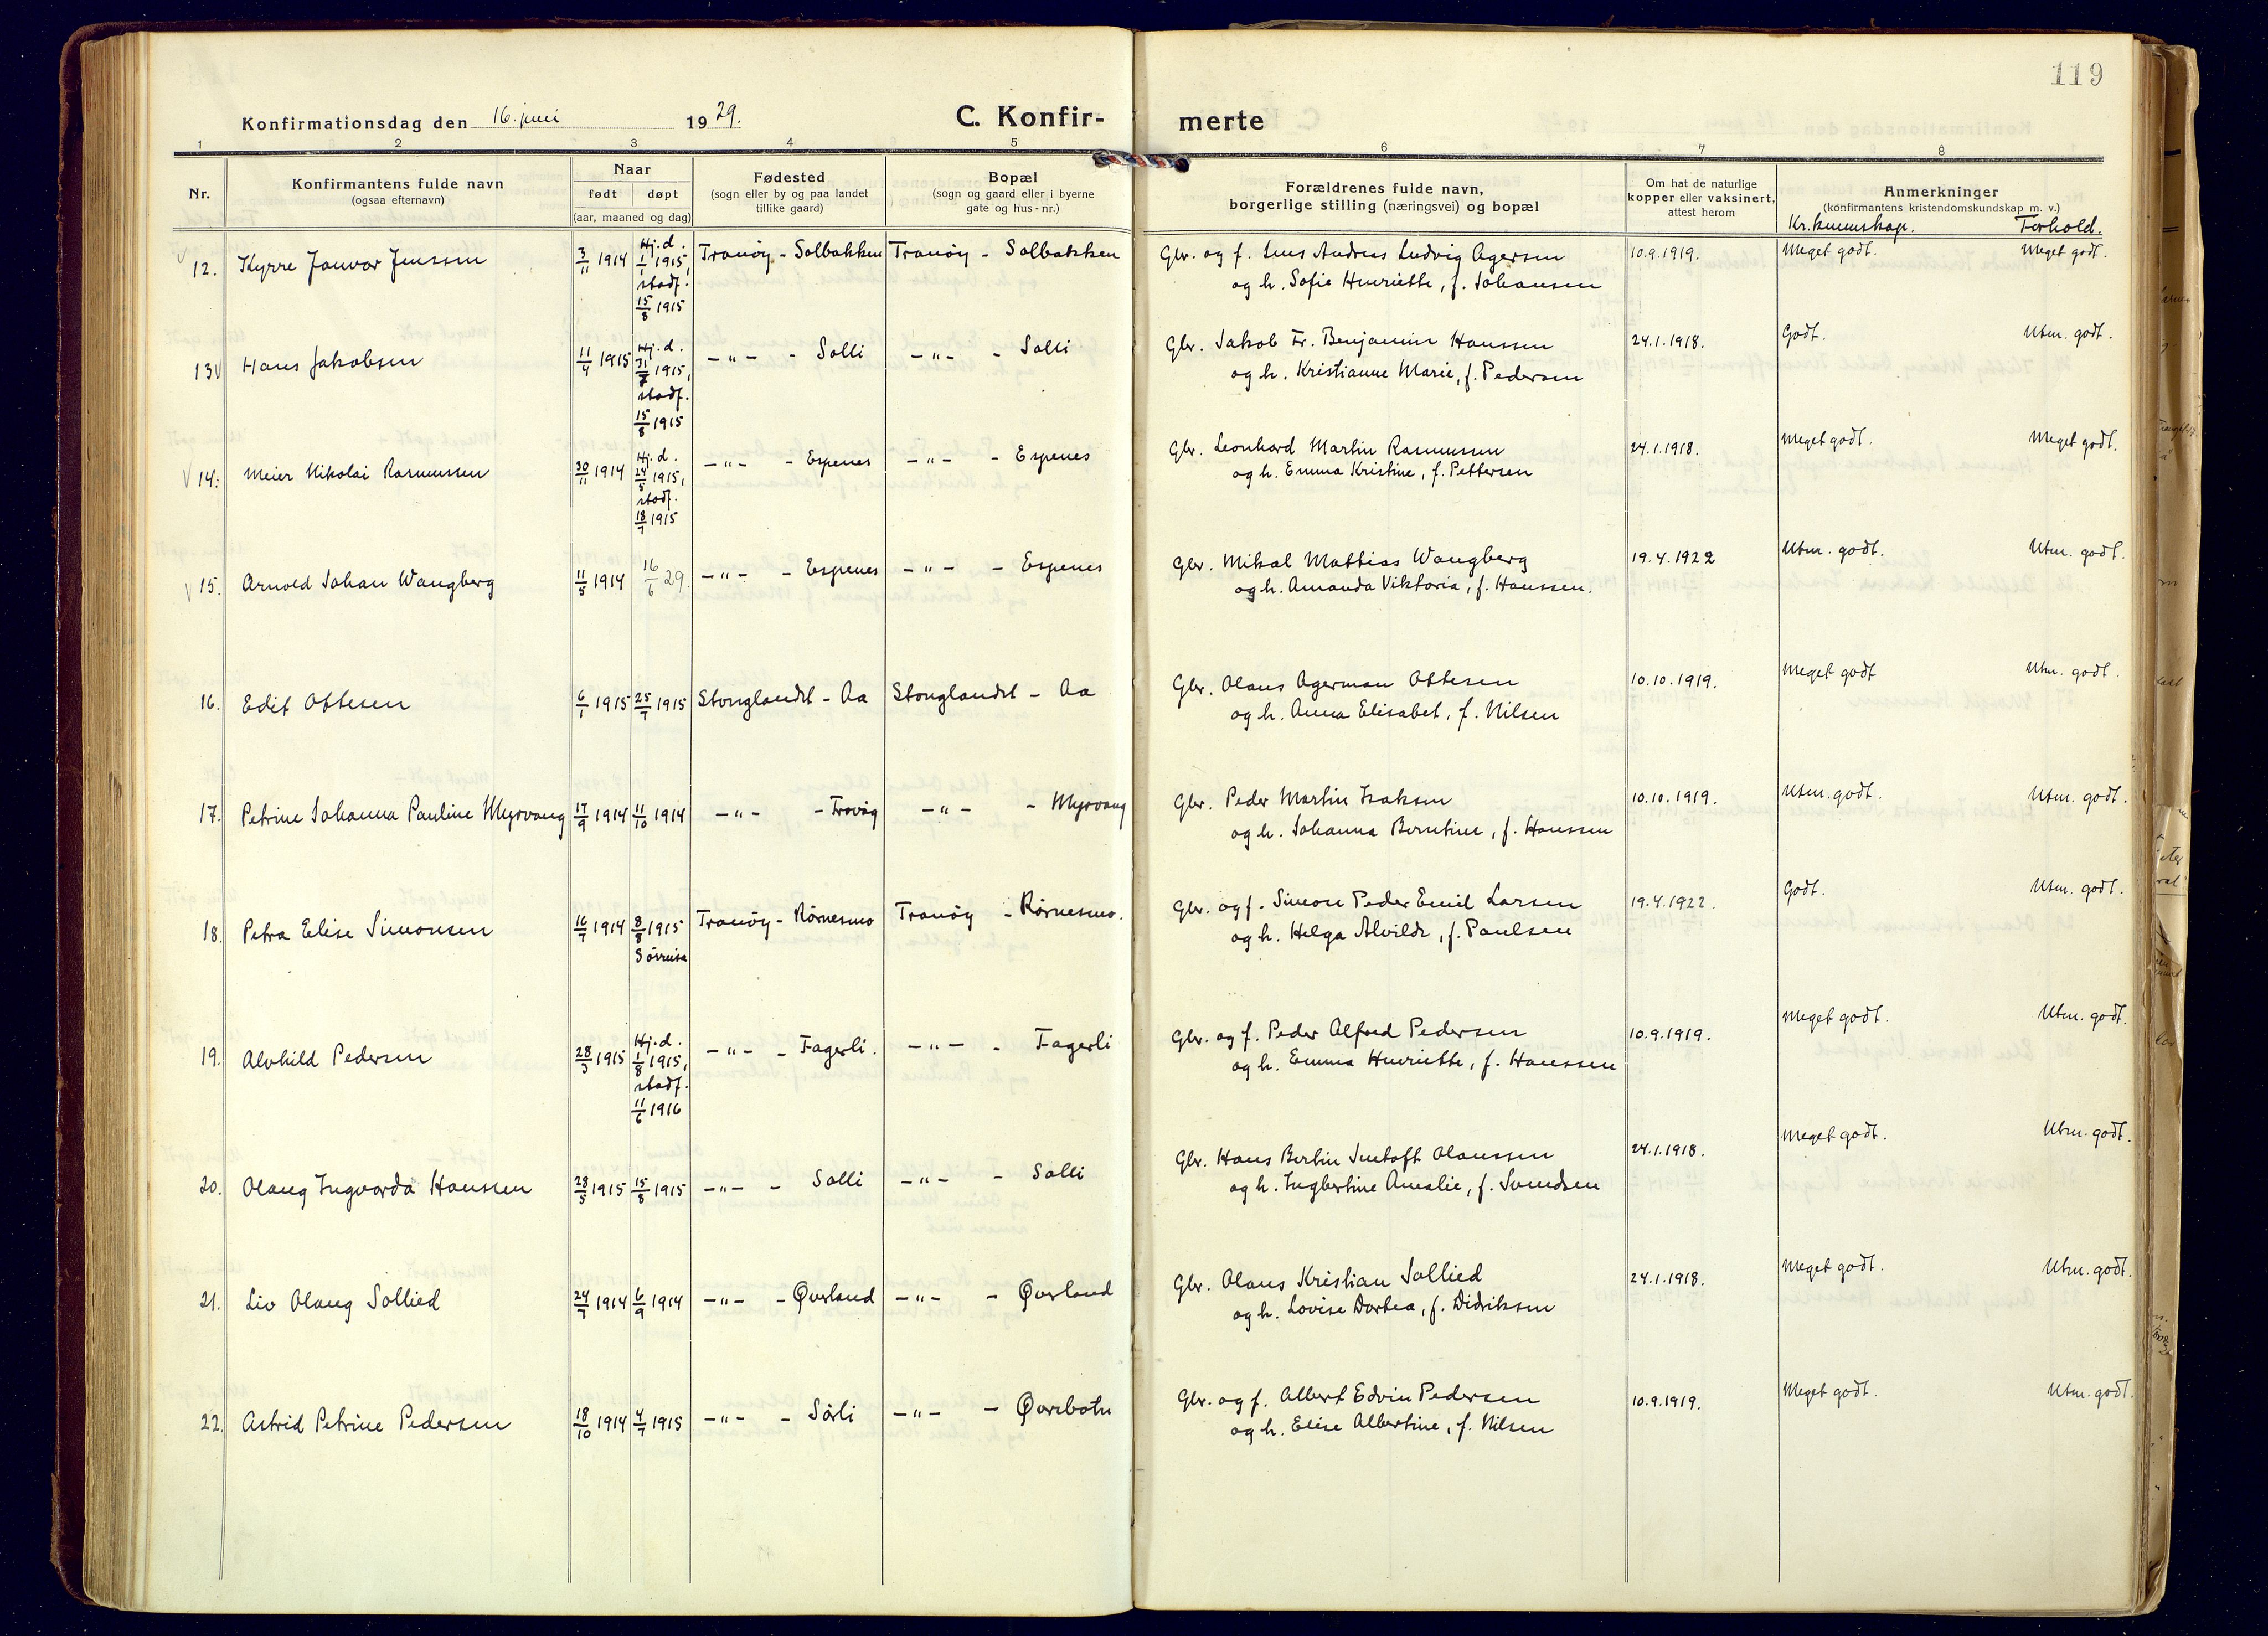 119
Konfirmationsdag den 16. juni 1929.
C. Konfir-merte
1 2 3 4 5 6 7 8
Nr.
Konfirmantens fulde navn
(ogsaa efternavn)
Naar
født døpt
(aar, maaned og dag)
Fødested
(sogn eller by og paa landet
tillike gaard)
Bopæl
(sogn og gaard eller i byerne
gate og hus-nr.)
Forældrenes fulde navn,
borgerlige stilling (næringsvei) og bopæl
Om hat de naturlige
kopper eller vaksinert,
attest herom
Anmerkninger
(konfirmantens kristendomskundskap m. v.)
Kr.kunnskap. Forhold.
12. Kyrre Januar Jenssen 3/11 1914 Hj.d. 1/1 1915, stadf. 15/8 1915 Tranöy - Solbakken Tranöy - Solbakken Gbr. og f. Jens Andreas Ludvig Agersen 10.9.1919. Meget godt. Meget godt.
og h. Sofie Henriette, f. Johansen
13 Hans Jakobsen 11/4 1915 Hj.d. 31/7 1915, stadf. 15/8 1915 -"- - Solli -"- - Solli Gbr. Jakob Fr. Benjamin Hanssen 24.1.1918. Godt. Utm. godt.
og h. Kristianne Marie, f. Pedersen
14. Meier Nikolai Rasmussen 30/11 1914 Hj.d. 24/5 1915, stadf. 18/7 1915 -"- - Espenes -"- - Espenes Gbr. Leonhard Martin Rasmussen 24.1.1918. Meget godt. Meget godt.
og h. Emma Kristine, f. Pettersen
15. Arnold Johan Wangberg 11/5 1914 16/6 29. -"- - Espenes -"- - Espenes Gbr. Mikal Mattias Wangberg 19.4.1922 Utm. godt. Utm. godt.
og h. Amanda Viktoria, f. Hanssen.
16. Edit Ottesen 6/1 1915 25/7 1915 Stonglandet - Aa Stonglandet - Aa Gbr. Olaus Agerman Ottesen 10.10.1919. Meget godt Utm. godt.
og h. Anna Elisabet, f. Nilsen
17. Petrine Johanna Pauline Myrvang 17/9 1914 11/10 1914 -"- - Trovåg -"- - Myrvang Gbr. Peder Martin Isaksen 10.10.1919. Utm. godt. Utm. godt.
og h. Johanna Berntine, f. Hanssen
18. Petra Elise Simonsen 16/7 1914 8/8 1915 Sörreisa Tranöy - Rörnesmo Tranöy - Rörnesmo. Gbr. og f. Simon Peder Emil Larsen 19.4.1922. Godt. Utm. godt.
og h. Helga Alvilde, f. Paulsen
19. Alvhild Pedersen 28/3 1915 Hj.d. 1/8 1915, stadf. 11/6 1916 -"- - Fagerli. -"- - Fagerli Gbr. og f. Peder Alfred Pedersen 10.9.1919. Meget godt. Utm. godt.
og h. Emma Henriette, f. Hanssen
20. Olaug Ingvarda Hanssen 28/5 1915 15/8 1915 -"- - Solli -"- - Solli Gbr. Hans Bertin Jentoft Olaussen 24.1.1918. Meget godt. Utm. godt.
og h. Ingbertine Amalie, f. Svendsen
21. Liv Olaug Sollied 24/7 1914 6/9 1914 -"- - Øverland -"- - Øverland Gbr. Olaus Kristian Sollied 24.1.1918. Meget godt. Utm. godt.
og h. Lovise Dortea, f. Didriksen
22. Astrid Petrine Pedersen 18/10 1914 4/7 1915 -"- - Sörli -"- - Øverbotn Gbr. og f. Albert Edvin Pedersen 10.9.1919. Meget godt. Utm. godt.
og h. Elise Albertine, f. Nilsen